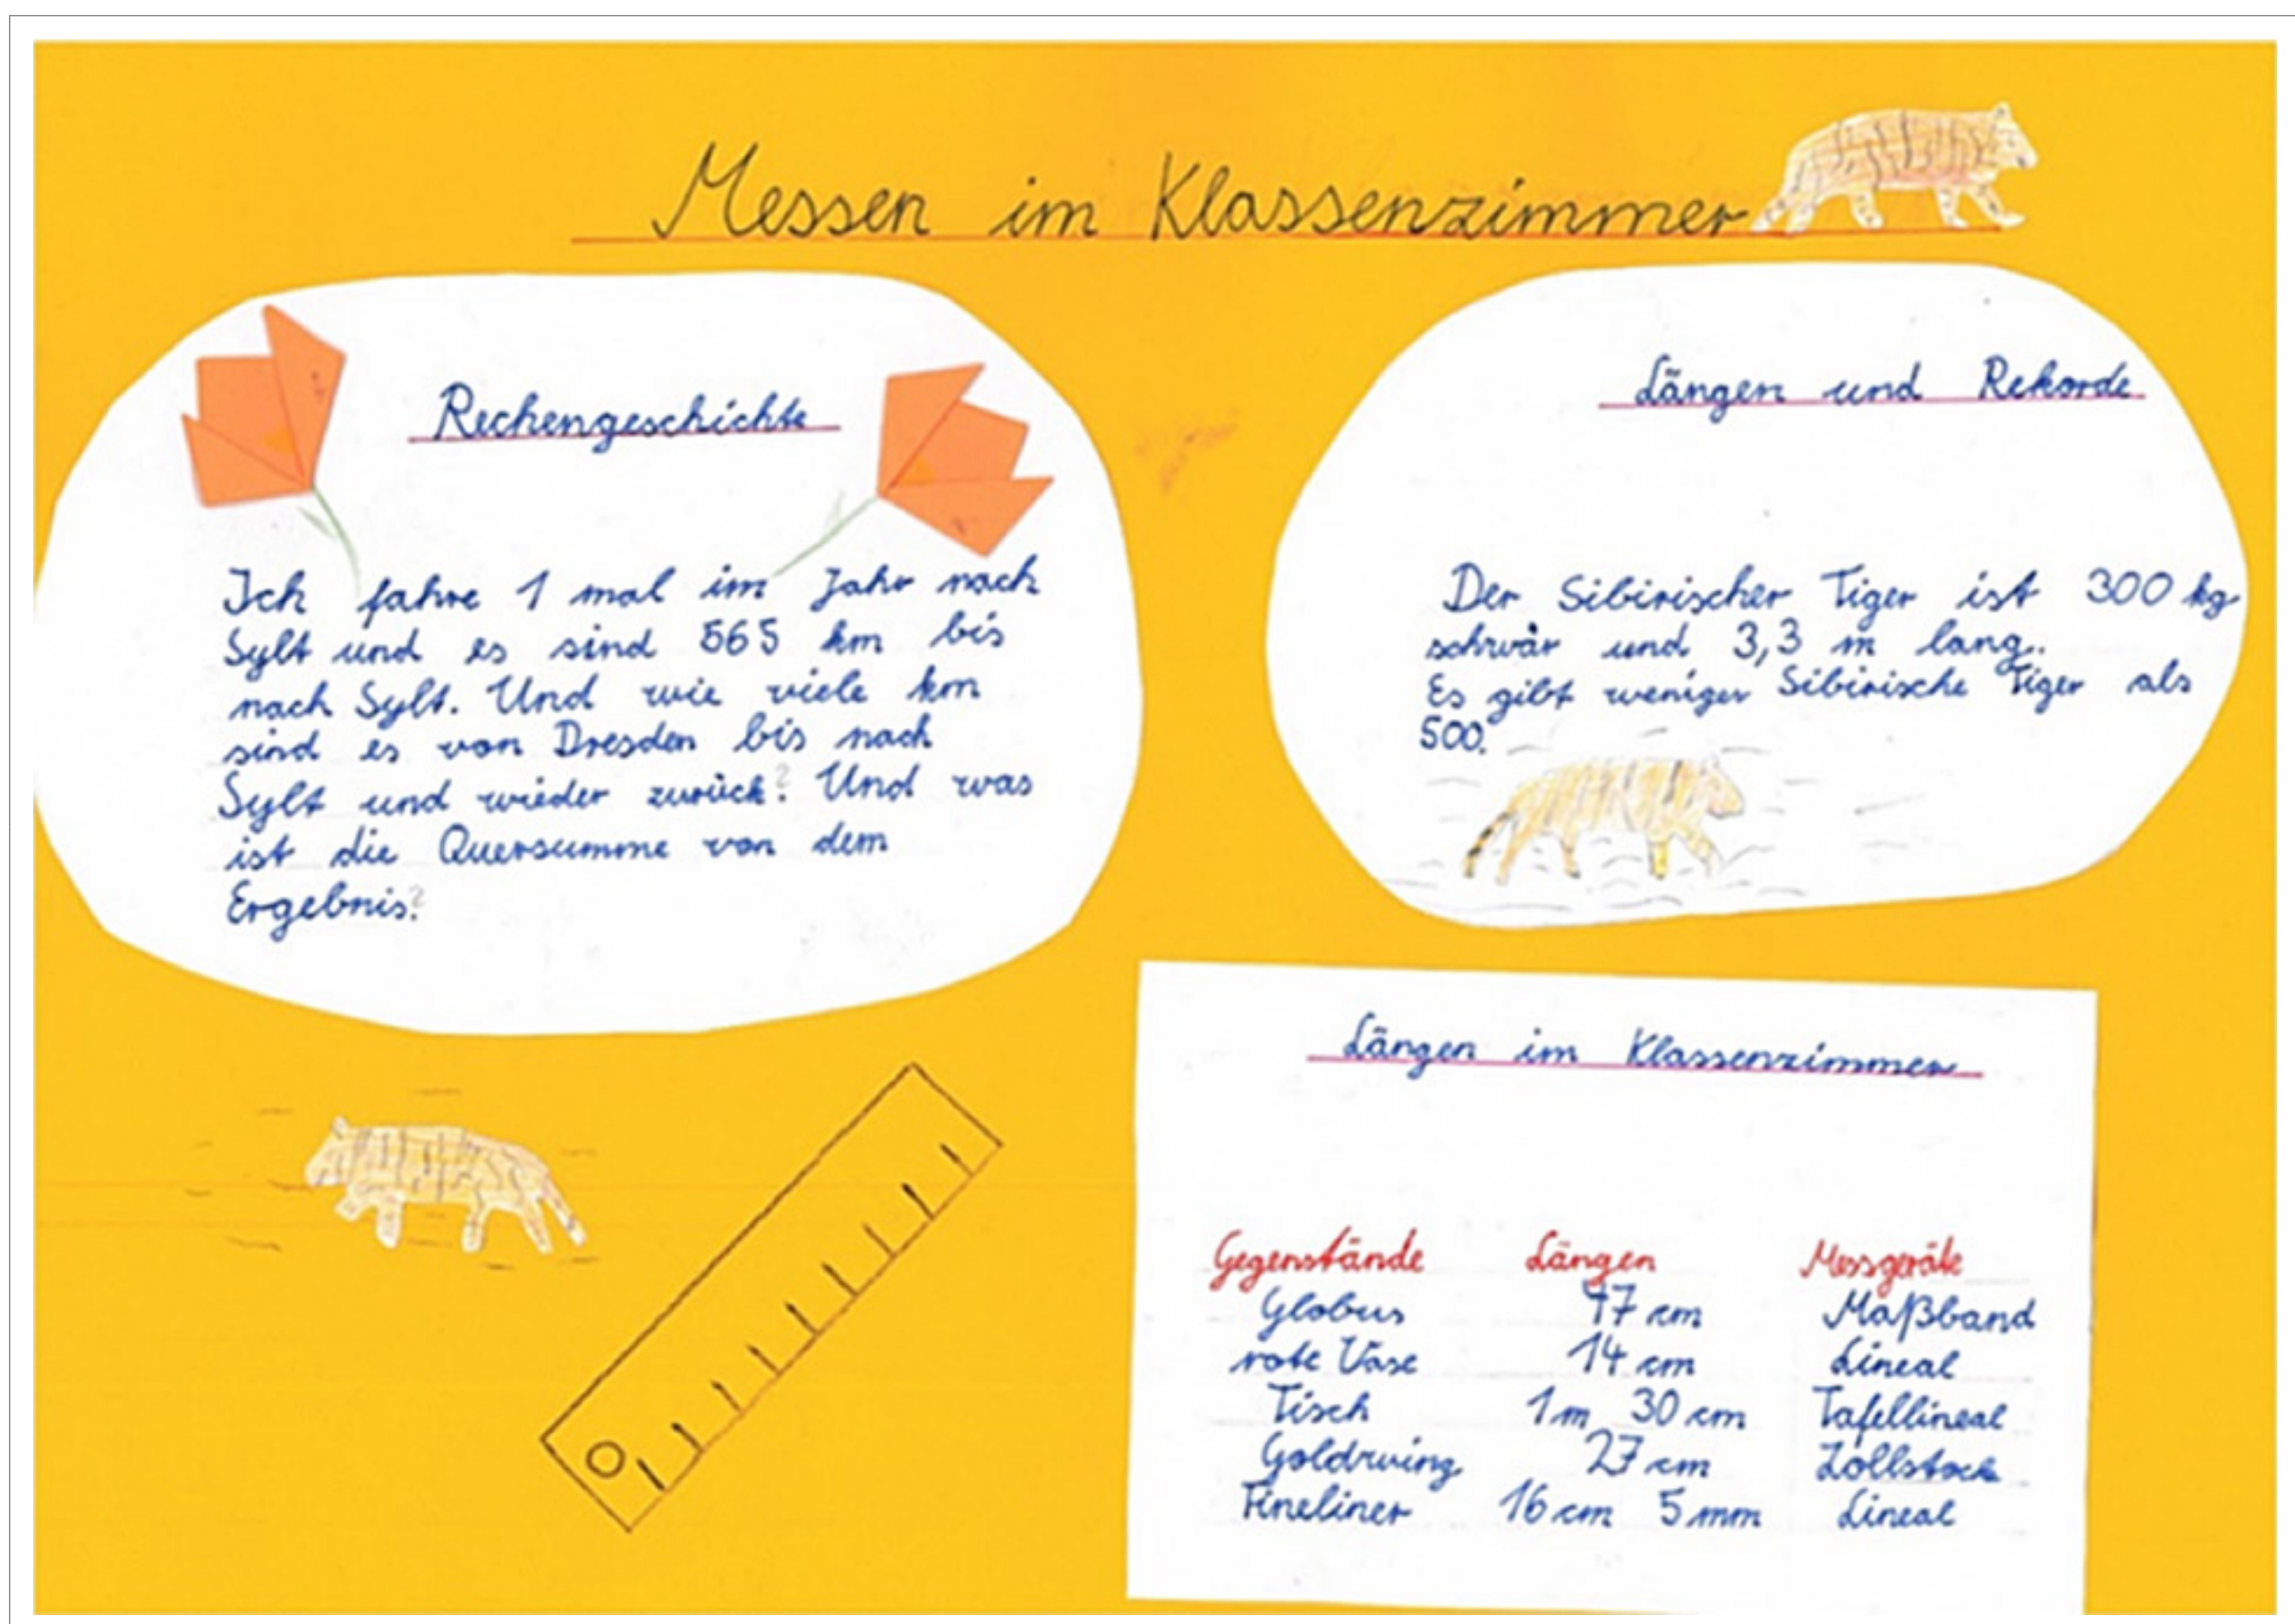 Messen im Klassenzimmer
Rechengeschichte
Ich fahre 1 mal im Jahr nach
Sylt und es sind 565 km bis
nach Sylt. Und wie viele km
sind es von Dresden bis nach
Sylt und wieder zurück? Und was
ist die Quersumme von dem
Ergebnis?
Längen und Rekorde
Der Sibirischer Tiger ist 300 kg
schwär und 3,3 m lang.
Es gibt weniger Sibirische Tiger als
500.
Längen im Klassenzimmer
Gegenstände Längen Messgeräte
Globus cm Maßband
rote Vase 14 cm Lineal
Tisch 1 m 30 cm Tafellineal
Goldwing 27 cm Zollstock
Fineliner 16 cm 5 mm Lineal
0